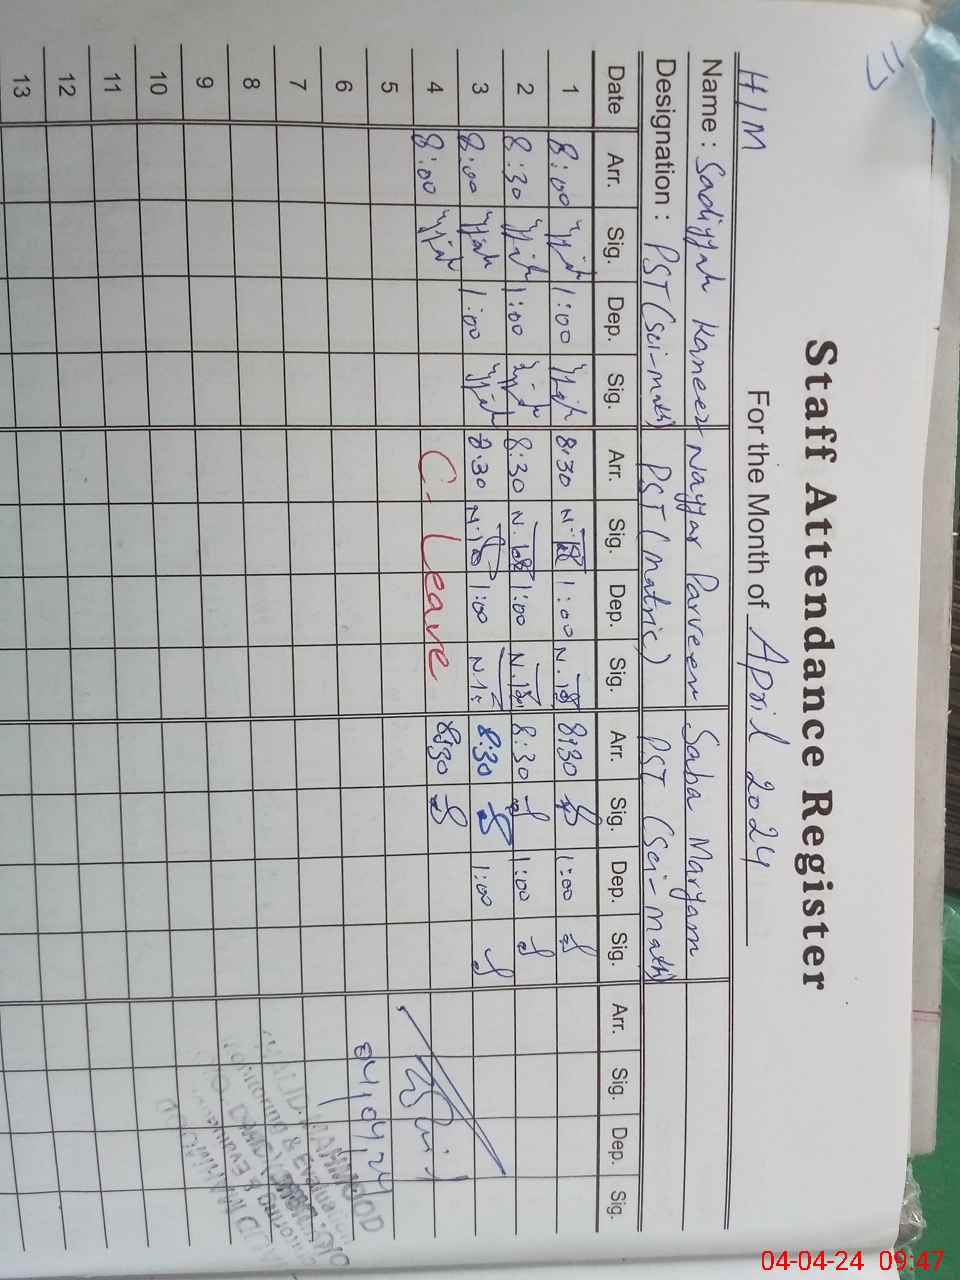 Staff Attendance Register
For the Month of April 2024
H/M
Name : Sadiyyah Kaneez Nayyar Parveen Saba Maryam
Designation : PST (sci-math) PST (Matric) PST (Sci-Math)
Date Arr. Sig. Dep. Sig. Arr. Sig. Dep. Sig. Arr. Sig. Dep. Sig. Arr. Sig. Dep. Sig.
1 8:00 1:00 8:30 1:00 8:30 1:00
2 8:30 1:00 8:30 1:00 8:30 1:00
3 8:00 1:00 8:30 1:00 8:30 1:00
4 8:00 C. Leave 8:30
5 04/04/24
6
7
8
9
10
11
12
13
MAHMOOD
Monitoring & Evaluation
04-04-24 09:47